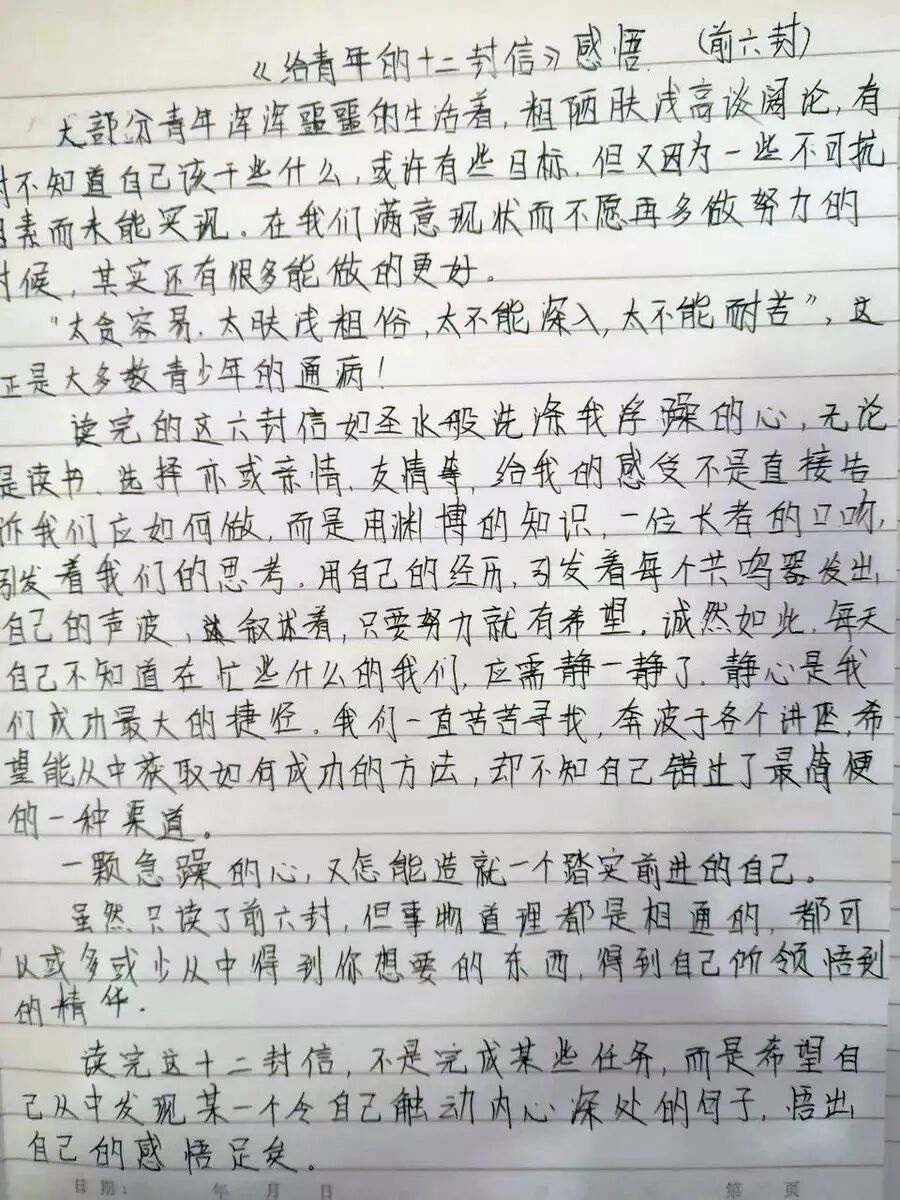 《给青年的十二封信》感悟 (前六封)
大部分青年浑浑噩噩的生活着,粗陋肤浅高谈阔论,有
时不知道自己该干些什么,或许有些目标.但又因为一些不可抗
因素而未能实现。在我们满意现状而不愿再多做努力的
时候,其实还有很多能做的更好。
“太贪容易.太肤浅粗俗,太不能深入,太不能耐苦”,这
正是大多数青少年的通病!
读完的这六封信如圣水般洗涤我浮躁的心,无论
是读书、选择亦或亲情、友情等,给我的感受不是直接告
诉我们应如何做,而是用渊博的知识,一位长者的口吻,
引发着我们的思考.用自己的经历,引发着每个共鸣器发出
自己的声波,叙述着,只要努力就有希望。诚然如此.每天
自己不知道在忙些什么的我们,应需静一静了.静心是我
们成功最大的捷径。我们一直苦苦寻找,奔波于各个讲座,希
望能从中获取如何成功的方法,却不知自己错过了最简便
的一种渠道。
一颗急躁的心,又怎能造就一个踏实前进的自己。
虽然只读了前六封,但事物道理都是相通的,都可
以或多或少从中得到你想要的东西,得到自己所领悟到
的精华.
读完这十二封信,不是完成某些任务,而是希望自
己从中发现某一个令自己触动内心深处的句子,悟出
自己的感悟足矣。
日期: 年 月 日 第 页